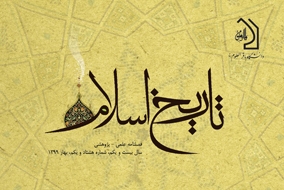 دانشگاه باقرالعلوم
تاریخ اسلام
فصلنامه علمی - پژوهشی
سال بیست و یکم، شماره هشتاد و یکم، بهار ۱۳۹۹